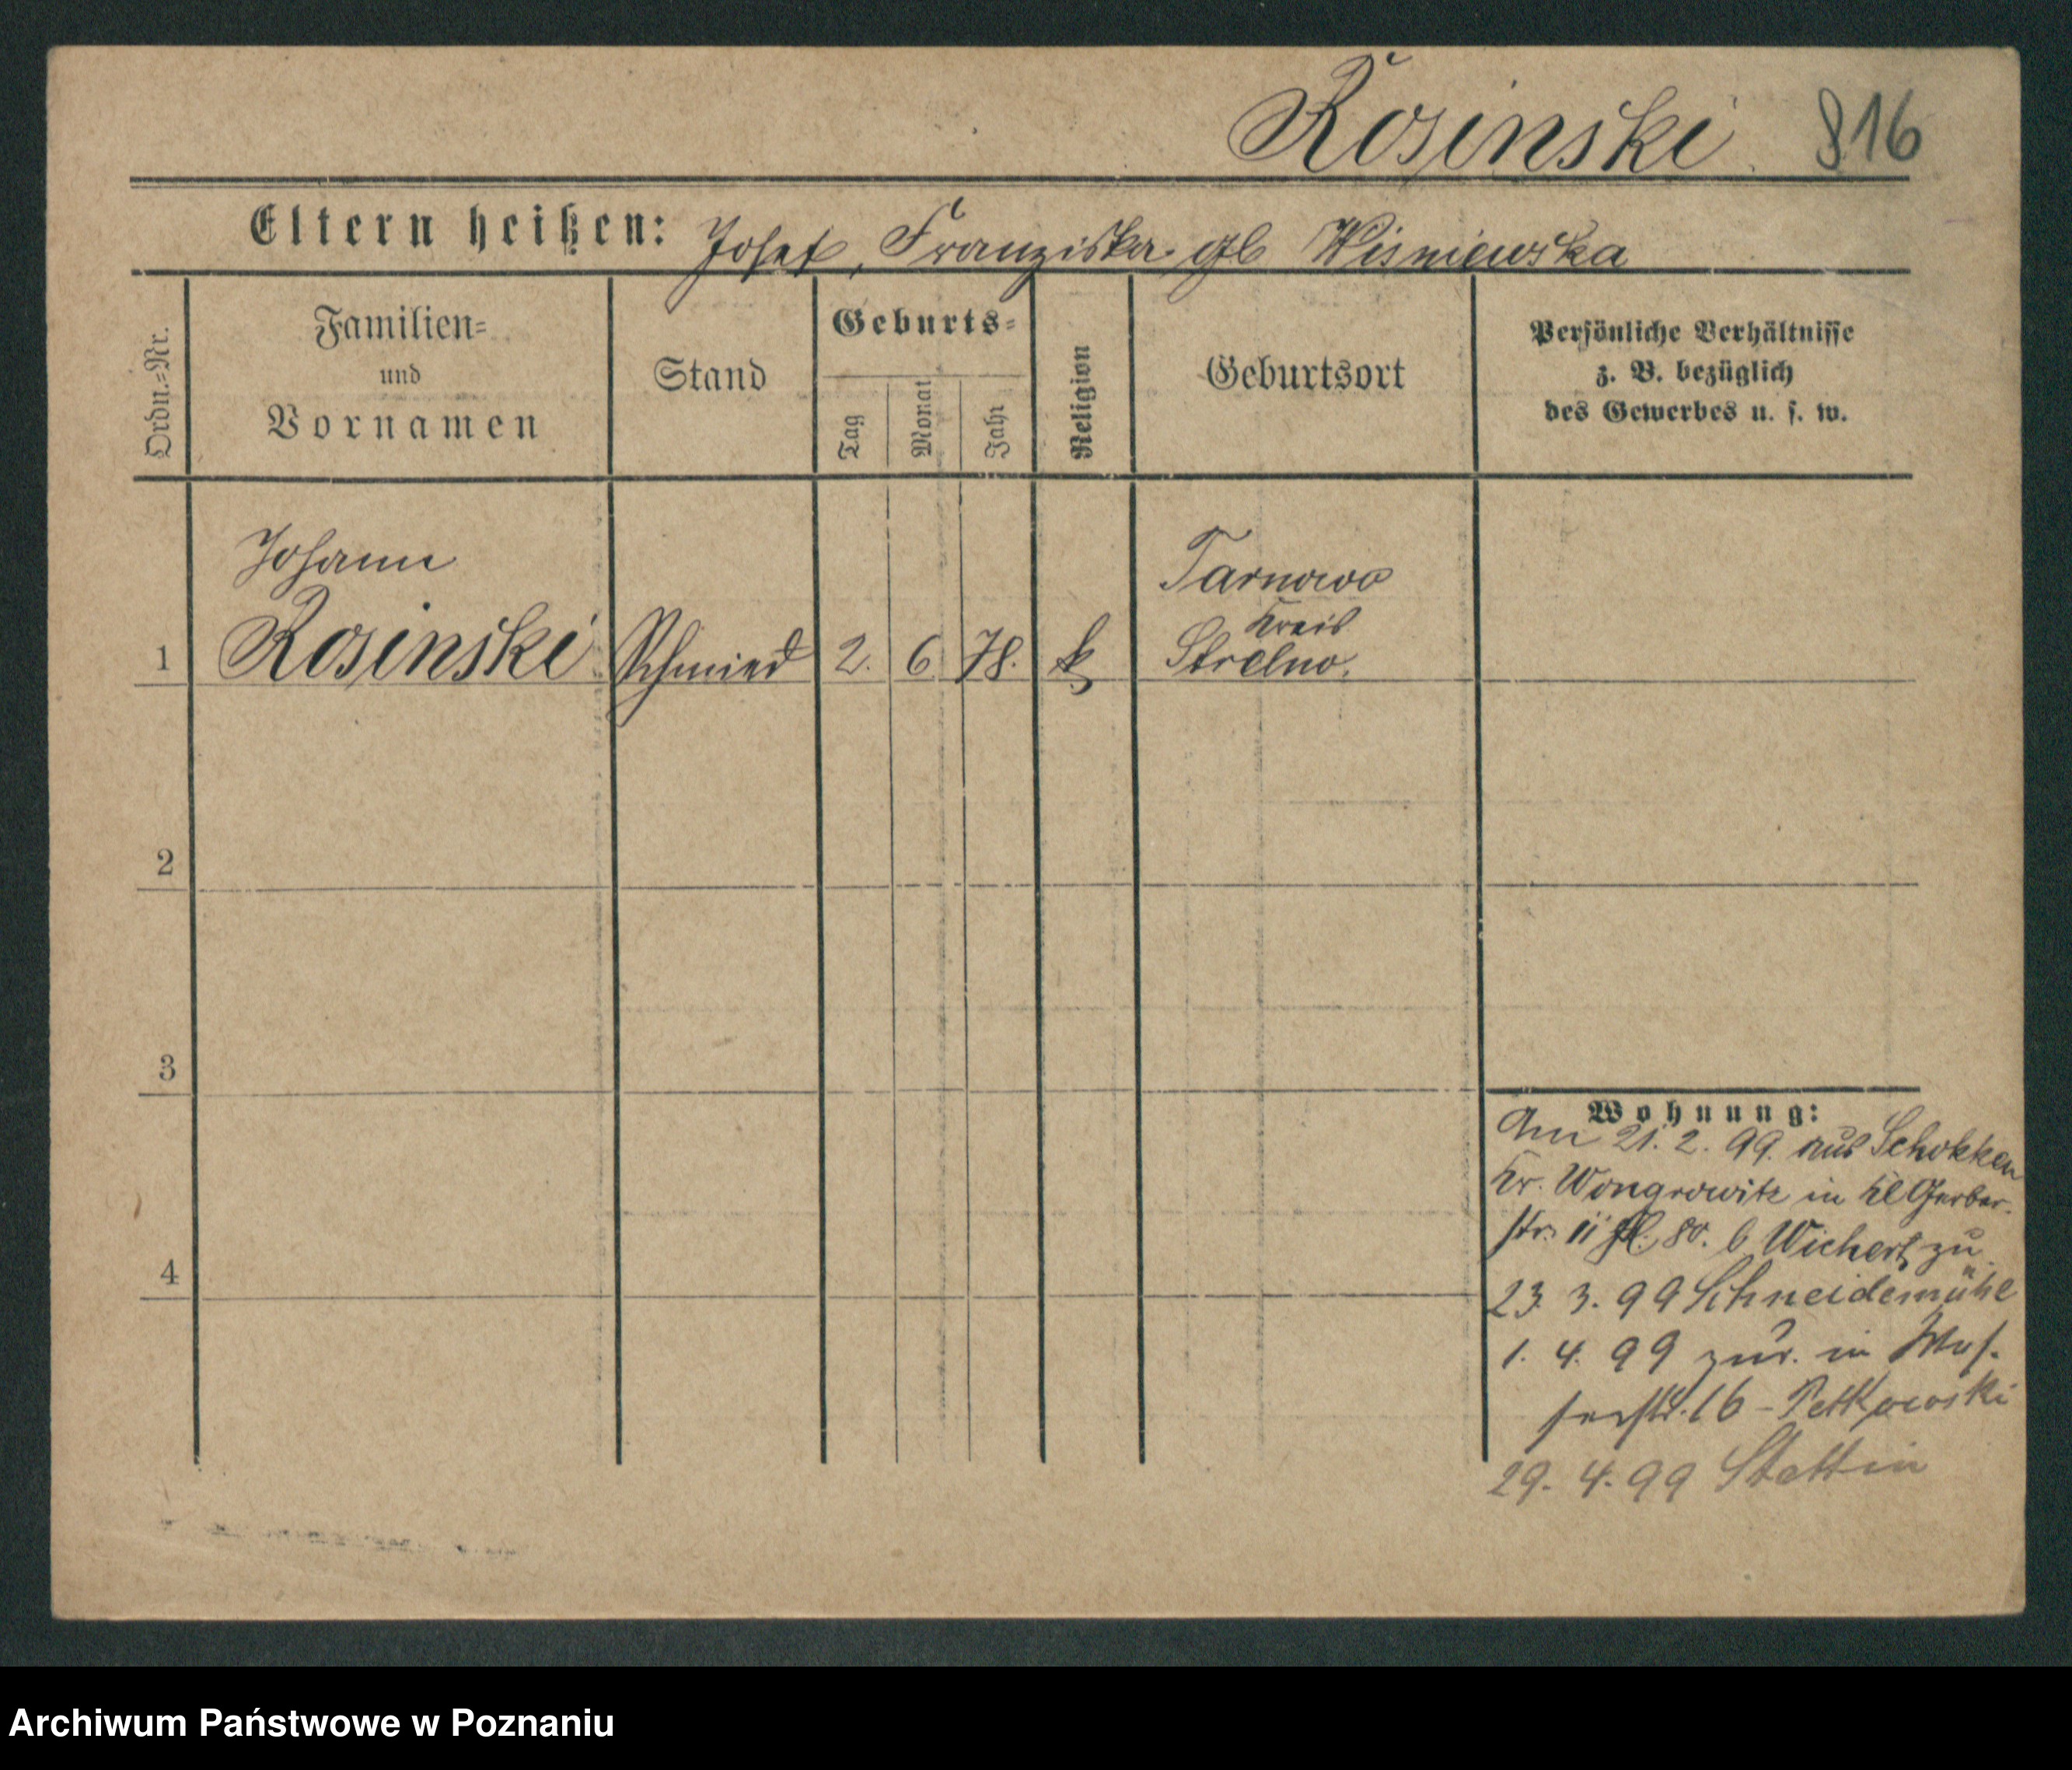 Rosinski 816
Eltern heißen: Josef, Franziska gb Wisniewska
Ordn.=Nr.
Familien=
und
Vornamen
Stand
Geburts=
Tag
Monat
Jahr
Religion
Geburtsort
Persönliche Verhältnisse
z. B. bezüglich
des Gewerbes u. s. w.
Johann
Tarnowo
Kreis
1 Rosinski Schmied 2. 6 78. k Strelno.
2
3
4
Wohnung:
Am 21. 2. 99. aus Schokken
Kr. Wongrowitz in Kl Gerber-
str. 11 80. b Wichert zu
23. 3. 99 Schneidemühl
1. 4. 99 zur. in Was-
serstr. 16 - Petkowski
29. 4. 99 Stettin
Archiwum Państwowe w Poznaniu